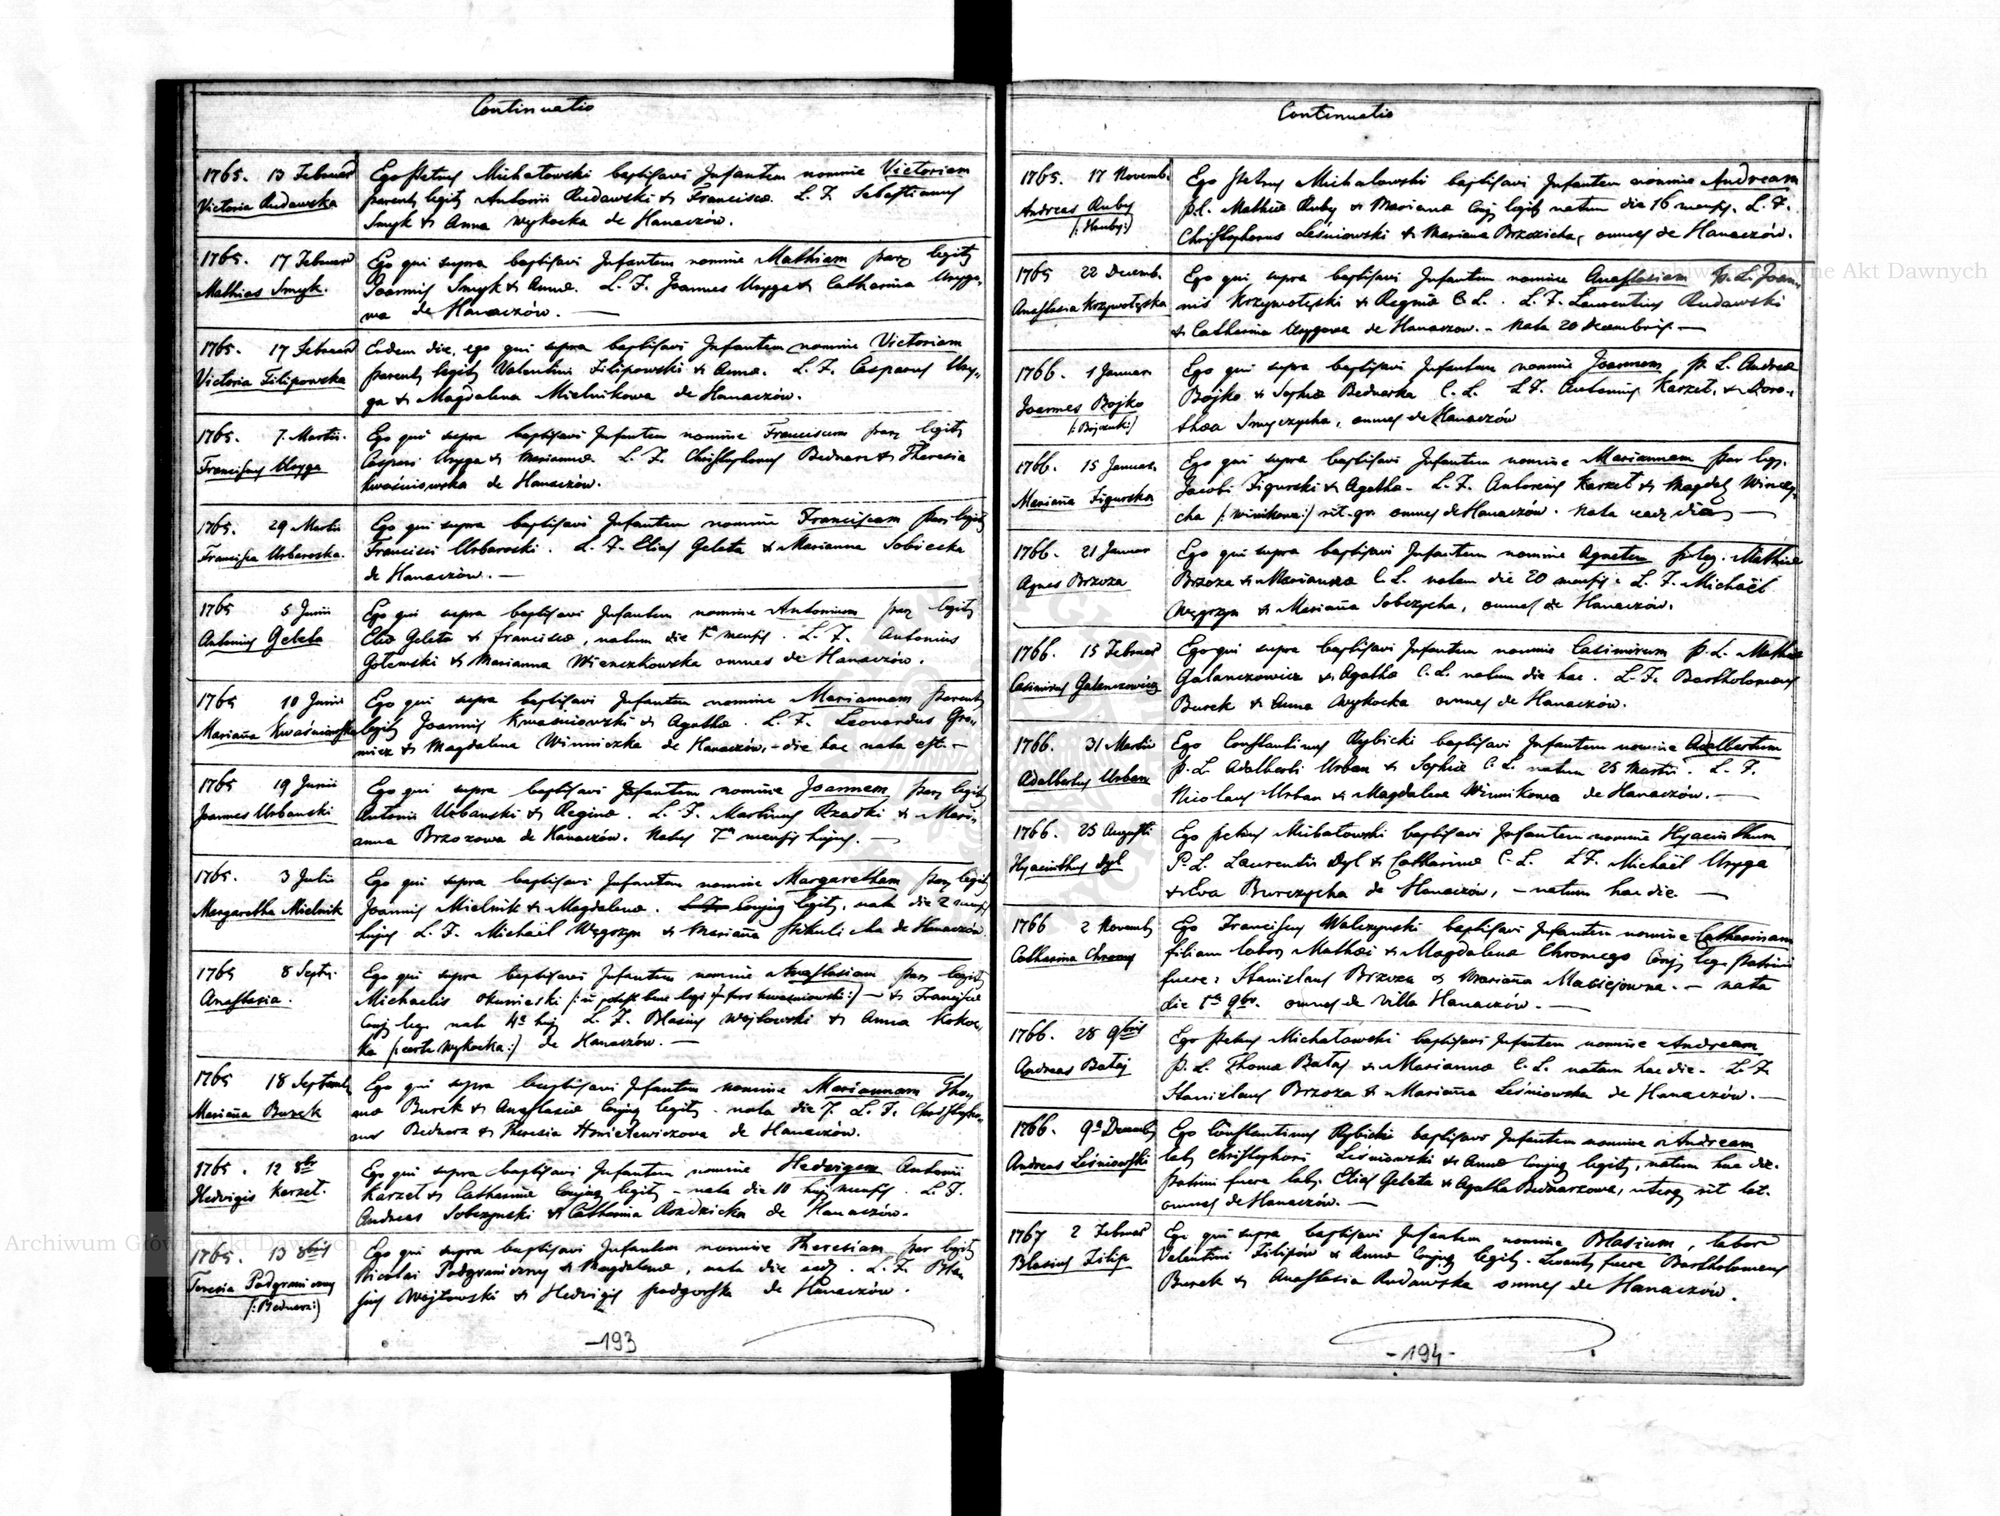 Continuatio
1765. 13 Februar
Victoria Rudawska
Ego Petrus Michałowski baptisavi Infantem nomine Victoriam
parent. legit. Antonii Rudawski & Francisca. L. F. Sebastianus
Smyk & Anna Wykocka de Hanaczów.
1765. 17 Februar
Mathias Smyk.
Ego qui supra baptisavi Infantem nomine Mathiam par. legit.
Joannis Smyk & Anna. L. F. Joannes Uryga & Catharina Uryga,
wa de Hanaczów. —
1765. 17 Februar
Victoria Filipowska
Eadem die, ego qui supra baptisavi Infantem nomine Victoriam
parent. legit. Valentini Filipowski & Anna. L. F. Casparus Ury,,
ga & Magdalena Mielnikowa de Hanaczów.
1765. 7. Martii.
Franciscus Uryga
Ego qui supra baptisavi Infantem nomine Franciscum par. legit.
Caspari Uryga & Marianna. L. F. Christophorus Bednarz & Theresia
Kwaśniowska de Hanaczów.
1765. 29 Martii
Francisca Urbarska.
Ego qui supra baptisavi Infantem nomine Franciscam par. legit.
Francisci Urbarski. L. F. Elias Geleta & Marianna Sobieska
de Hanaczów. —
1765 5 Junii
Antonius Geleta
Ego qui supra baptisavi Infantem nomine Antonium par. legit.
Elia Geleta & Francisca, natum die 1ma mensis. L. F. Antonius
Gołewski & Marianna Wienczkowska omnes de Hanaczów.
1765 10 Junii
Mariaña Kwaśniowska
Ego qui supra baptisavi Infantem nomine Mariannam parent.
legit. Joannis Kwasniowski & Agatha. L. F. Leonardus Gro,,
micz & Magdalena Winniczka de Hanaczów, – die hac nata est. –
1765 19 Junii
Joannes Urbanski
Ego qui supra baptisavi Infantem nomine Joannem par. legit.
Antonii Urbanski & Regina. L. F. Martinus Rzadki & Mari,,
anna Brzozowa de Hanaczów. Natus 7ma mensis hujus. —
1765. 3 Julii
Margaretha Mielnik
Ego qui supra baptisavi Infantem nomine Margaretham par. legit.
Joannis Mielnik & Magdalena. L. F. Conjug. legit. nata die 2 mensis
hujus L. F. Michael Węgrzyn & Mariaña Mikulicha de Hanaczów.
1765 8 Septri.
Anastasia.
Ego qui supra baptisavi Infantem nomine Anastasiam par. legit.
Michaelis Okunieski & Francisca
Conj. leg. nata 4a huj. L. F. Blasius Wojtowski & Anna Kokoc,,
ka /: certe Wykocka :/ de Hanaczów. —
1765 18 Septemb.
Mariaña Burek
Ego qui supra baptisavi Infantem nomine Mariannam Tho,,
ma Burek & Anastasia Conjug. legit. nata die 7. L. F. Christopho,,
rus Bednarz & Theresia Hmielewiczowa de Hanaczów.
1765. 12 8br
Hedvigis Karzet.
Ego qui supra baptisavi Infantem nomine Hedvigem Antonii
Karzet & Catharina Conjug. legit. – nata die 10 huj. mensis. L. F.
Andreas Sobczynski & Catharina Rozdzicka de Hanaczów.
1765. 13 8bris
Teresia Podgraniczny
/: Bednarz :/
Ego qui supra baptisavi Infantem nomine Theresiam par. legit.
Nicolai Podgraniczny & Magdalena, nata die ead. L. F. Bla,,
sius Wojtowski & Hedvigis Podgorska de Hanaczów.
– 193
Continuatio
1765. 17 Novemb.
Andreas Ruby
/: Hruby :/
Ego Petrus Michałowski baptisavi Infantem nomine Andream
p. l. Mathia Ruby & Mariana Conj. legit. natum die 16 mensis. L. F.
Christophorus Leśniowski & Mariana Brzozicha, omnes de Hanaczów.
1765 22 Decemb.
Anastasia Krzywołęska
Ego qui supra baptisavi Infantem nomine Anastasiam p. L. Joan,,
nis Krzywołęski & Regina C. L. L. F. Laurentius Rudawski
& Catharina Urygowa de Hanaczow. – Nata 20 Decembris. —
1766. 1 Januar.
Joannes Bojko
/: Bojczuk :/
Ego qui supra baptisavi Infantem nomine Joannem p. L. Andrea
Bojko & Sophia Bednarka C. L. L. F. Antonius Karzet, & Doro,,
thea Smyczycha, omnes de Hanaczów
1766. 15 Januar.
Mariaña Figurska
Ego qui supra baptisavi Infantem nomine Mariannam par. leg.
Jacobi Figurski & Agatha. L. F. Antonius Karzet & Magdal. Winczy,,
cha /: Winnikowa :/ rit. gr. omnes de Hanaczów. Nata eadem die. —
1766. 21 Januar
Agnes Brzoza
Ego qui supra baptisavi Infantem nomine Agnetem p. leg. Mathia
Brzoza & Marianna C. L. natam die 20 mensis. L. F. Michaël
Węgrzyn & Mariaña Sobczycha, omnes de Hanaczów.
1766. 15 Februar
Casimirus Galanczowicz
Ego qui supra baptisavi Infantem nomine Casimirum p. L. Mathia
Galanczowicz & Agatha C. L. natum die hac. L. F. Bartholomeus
Burek & Anna Wykocka omnes de Hanaczów.
1766. 31 Martii
Adalbertus Urban
Ego Constantinus Rybicki baptisavi Infantem nomine Adalbertum
p. L. Adalberti Urban & Sophia C. L. natum 25 Martii. L. F.
Nicolaus Urban & Magdalena Winnikowa de Hanaczów. —
1766. 25 Augusti
Hyacinthus Dyl
Ego Petrus Michałowski baptisavi Infantem nomine Hyacinthum
P. L. Laurentii Dyl & Catharina C. L. L F. Michaël Uryga
& Eva Burczycha de Hanaczów, – natum hac die. —
1766 2 Novemb.
Catharina Chromy
Ego Franciscus Walczynski baptisavi Infantem nomine Catharinam
filiam labor. Mathæi & Magdalena Chromego Conj. leg. Patrini
fuere: Stanislaus Brzoza & Mariaña Maciejowna. – nata
die 1ma 9br. omnes de Villa Hanaczów. —
1766. 28 9bris
Andreas Bataj
Ego Petrus Michałowski baptisavi Infantem nomine Andream
p. L. Thoma Bataj & Marianna C. L. natum hac die. L. F.
Stanislaus Brzoza & Mariaña Leśniowska de Hanaczów. —
1766. 9a Decemb.
Andreas Leśniowski
Ego Constantinus Rybicki baptisavi Infantem nomine Andream
lab. Christophori Leśniowski & Anna Conjug. legit., natum hac die.
Patrini fuere lab. Elias Geleta & Agatha Bednarzowa, uterq. rit. lat.
omnes de Hanaczów. —
1767 2 Februar
Blasius Filip
Ego qui supra baptisavi Infantem nomine Blasium, labor.
Valentini Filipów & Anna Conjug. legit. Levantes fuere Bartholomeus
Burek & Anastasia Rudawska omnes de Hanaczów.
– 194 –
Archiwum Główne Akt Dawnych
Archiwum Główne Akt Dawnych